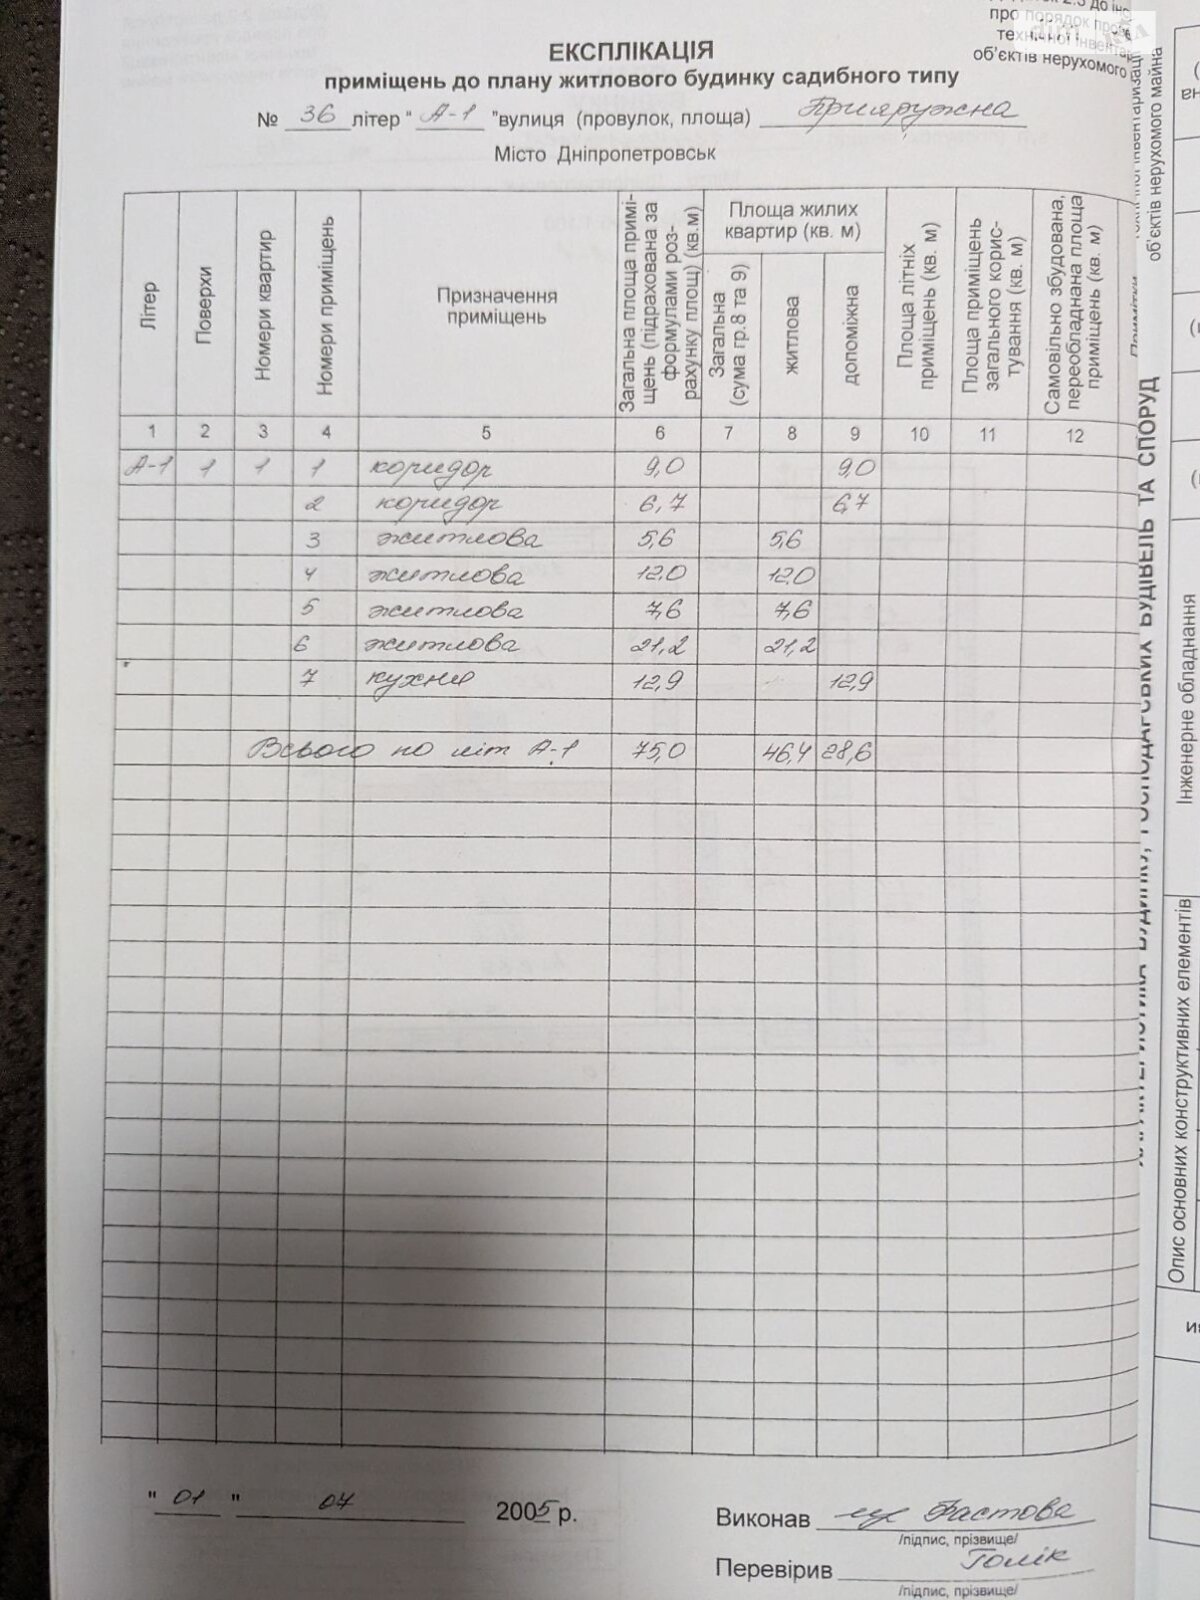 про порядок
технічної
об'єктів нерухомого
ЕКСПЛІКАЦІЯ
приміщень до плану житлового будинку садибного типу
№ 36 літер " А-1 "вулиця (провулок, площа) Прияружна
Місто Дніпропетровськ
Літер
Поверхи
Номери квартир
Номери приміщень
Призначення приміщень
Загальна площа приміщень (підрахована за формулами розрахунку площ) (кв.м)
Площа жилих квартир (кв. м)
Загальна (сума гр.8 та 9)
житлова
допоміжна
Площа літніх приміщень (кв. м)
Площа приміщень загального користування (кв. м)
Самовільно збудована, переобладнана площа приміщень (кв. м)
1 2 3 4 5 6 7 8 9 10 11 12
А-1 1 1 1 коридор 9,0 9,0
2 коридор 6,7 6,7
3 житлова 5,6 5,6
4 житлова 12,0 12,0
5 житлова 7,6 7,6
6 житлова 21,2 21,2
7 кухня 12,9 12,9
Всього по літ А-1 75,0 46,4 28,6
" 01 " 07 2005 р.
Виконав Фастова
/підпис, прізвище/
Перевірив Голік
/підпис, прізвище/
об'єктів нерухомого майна
ТА СПОРУД
Інженерне обладнання
Опис основних конструктивних елементів